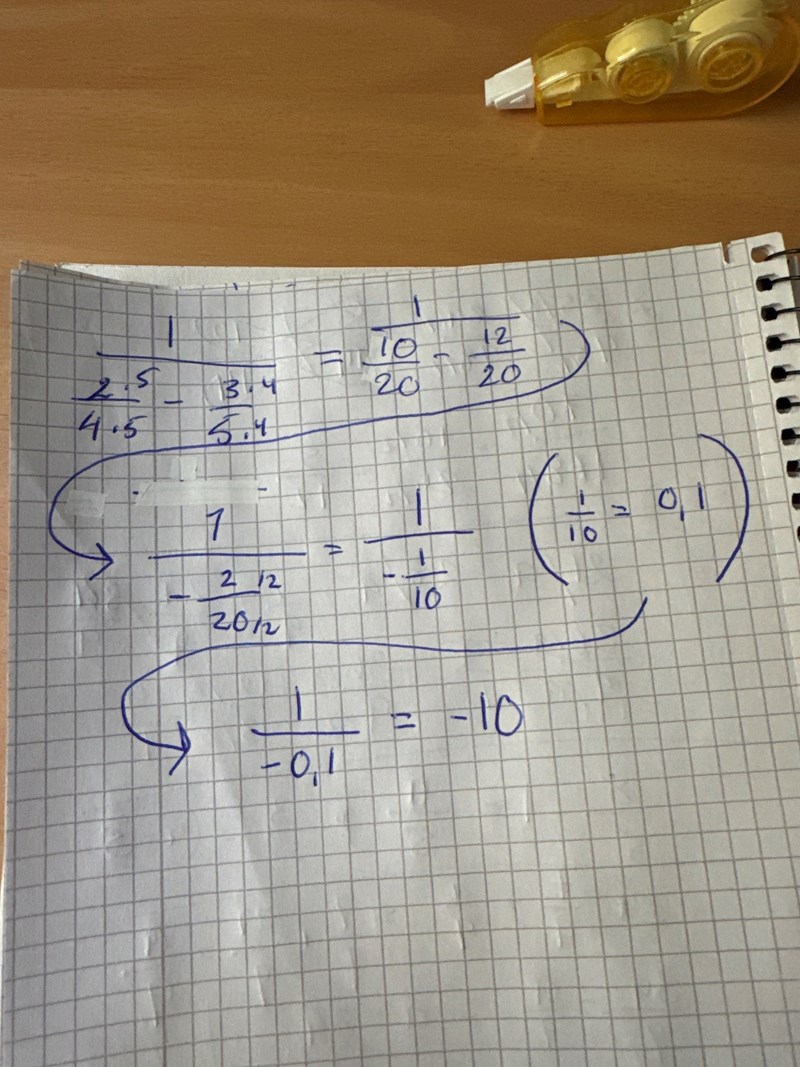 1/(2·5/4·5 - 3·4/5·4) = 1/(10/20 - 12/20)
1/(- 2/2/20/2) = 1/(- 1/10) (1/10 = 0,1)
1/-0,1 = -10